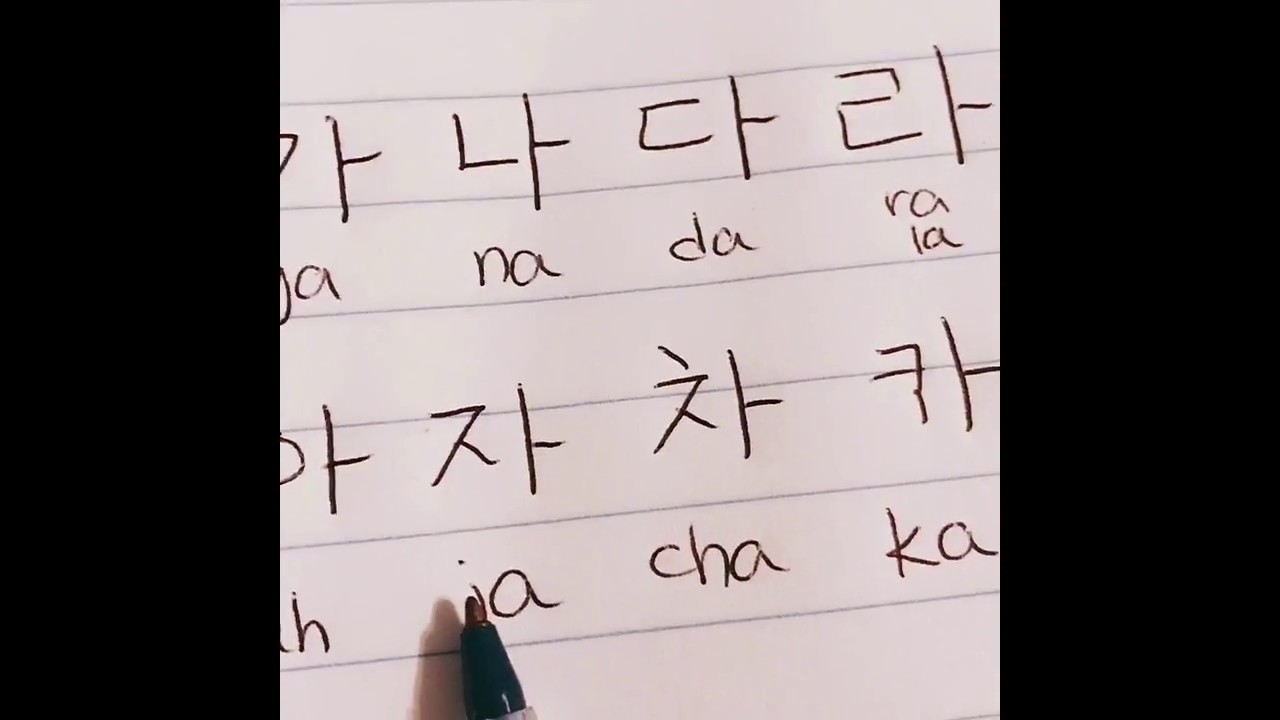 가 나 다 라
ga na da ra
la
아 자 차 카
ah ja cha ka